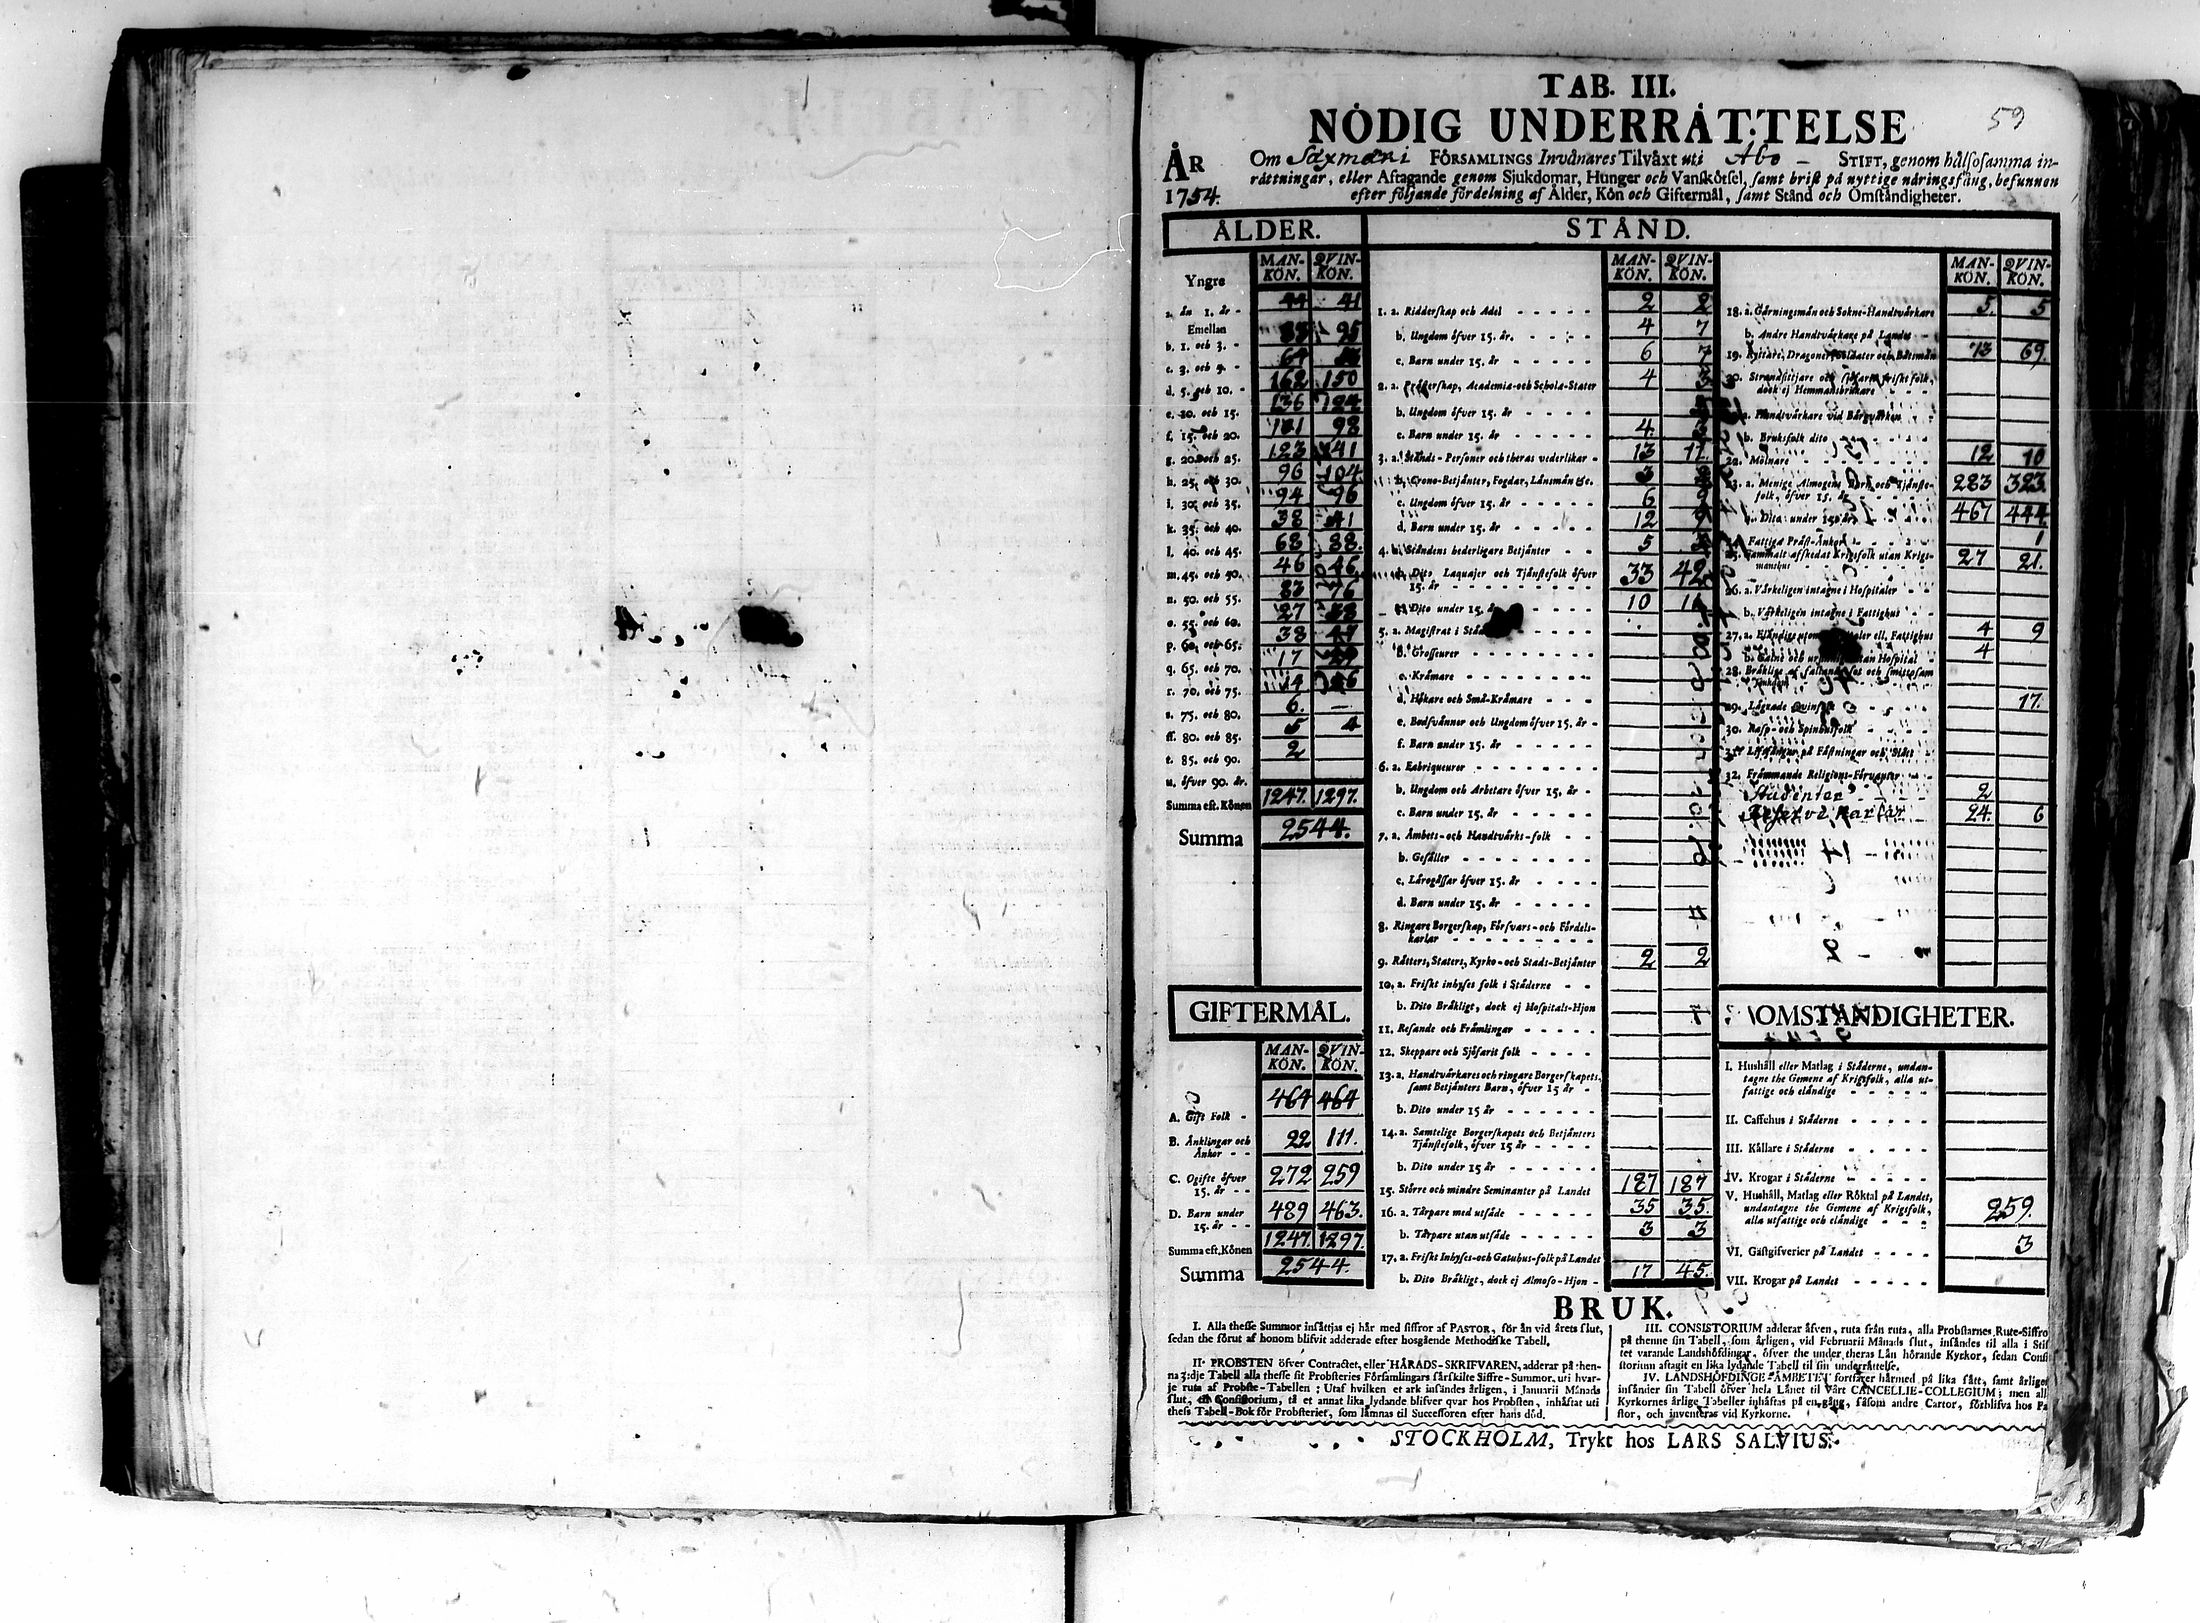 TAB. III.
59
NÖDIG UNDERRÅT:TELSE
ÅR 1754.
Om Saxmæki FÖRSAMLINGS Invånares Tilväxt uti Åbo – STIFT, genom hålsosamma in-
råttningar, eller Aftagande genom Sjukdomar, Hunger och Vanskötsel, samt brist på nyttige näringsfång, befunnen
efter följande fördelning af Ålder, Kön och Giftermål, samt Stånd och Omståndigheter.
ÅLDER.
MAN-KÖN. QVIN-KÖN.
Yngre
a. än 1. år - 44 41
Emellan
b. 1. och 3. - 95
c. 3. och 5. - 64
d. 5. och 10. - 162 150
e. 10. och 15. 136 124
f. 15. och 20. 101 98
g. 20. och 25. 123 141
h. 25. och 30. 96 104
i. 30. och 35. 94 96
k. 35. och 40. 38 41
l. 40. och 45. 68 88.
m. 45. och 50. 46 46
n. 50. och 55. 83 76
o. 55. och 60. 27 38
p. 60. och 65. 38 47
q. 65. och 70. 17 29
r. 70. och 75. 14 26
s. 75. och 80. 6. —
ff. 80. och 85. 5 4
t. 85. och 90. 2
u. öfver 90. år.
Summa eft. Könen 1247. 1297.
Summa 2544.
GIFTERMÅL.
MAN-KÖN. QVIN-KÖN.
A. Gift Folk - 464 464
B. Änklingar och Änkor - - 22 111.
C. Ogifte öfver 15. år - - 272 259
D. Barn under 15. år - - 489 463.
Summa eft. Könen 1247. 1297.
Summa 2544.
STÅND.
MAN-KÖN. QVIN-KÖN.
1. a. Ridderskap och Adel 2 2
b. Ungdom öfver 15. år. 4 7
c. Barn under 15. år 6 7
2. a. Prästerskap, Academiæ- och Schola-Stater 4 3
b. Ungdom öfver 15. år
c. Barn under 15. år 4.
3. a. Stånds-Personer och theras vederlikar 13 11.
b. Crono-Betjänter, Fogdar, Länsmän &c. 3
c. Ungdom öfver 15. år 6 9
d. Barn under 15. år 12 9
4. a. Ståndens hederligare Betjänter 5
b. Dito Laquajer och Tjänstefolk öfver 15. år 33 42
c. Dito under 15. år 10 11
5. a. Magistrat i Städerne
b. Grosseurer
c. Krämare
d. Hökare och Små-Krämare
e. Bodsvänner och Ungdom öfver 15. år
f. Barn under 15. år
6. a. Fabriqueurer
b. Ungdom och Arbetare öfver 15. år
c. Barn under 15. år
7. a. Ämbets- och Handtvärks-folk
b. Gesäller
c. Lärogässar öfver 15. år
d. Barn under 15. år
8. Ringare Borgerskap, Försvars- och Fördels-
karlar
9. Rätters, Staters, Kyrko- och Stads-Betjänter 2 2
10. a. Friskt inhyses folk i Städerne
b. Dito Bräkligt, dock ej Hospitals-Hjon
11. Resande och Främlingar
12. Skeppare och Sjöfarit folk
13. a. Handtvärkares och ringare Borgerskapets,
samt Betjänters Barn, öfver 15 år
b. Dito under 15 år
14. a. Samtelige Borgerskapets och Betjänters
Tjänstefolk, öfver 15 år
b. Dito under 15 år
15. Större och mindre Seminanter på Landet 187 187
16. a. Tårpare med utsäde 35 35.
b. Tårpare utan utsäde 3 3
17. a. Friskt Inhyses- och Gatuhus-folk på Landet
b. Dito Bräkligt, dock ej Almoso-Hjon 17 45.
MAN-KÖN. QVIN-KÖN.
18. a. Gärningsmän och Sokne-Handtvärkare 5. 5
b. Andre Handtvärkare på Landet
19. Ryttare, Dragoner, Soldater och Båtsmän 73 69.
20. Strandsittjare och sjöfarit friskt folk,
dock ej Hemmansbrukare
Handtvärkare vid Bärgvärken
b. Bruksfolk dito
22. Mölnare 12 10
23. a. Menige Almogens Barn och Tjänste-
folk, öfver 15. år 283 323.
b. Dito under 15. år 467 444.
24. Fattiga Präst-Änkor 1
25. Gammalt affskedat Krigsfolk utan Krigs-
manshus 27 21.
26. a. Värkeligen intagne i Hospitaler
b. Värkeligen intagne i Fattighus
27. a. Eländige utom Hospitaler ell. Fattighus 4 9
b. Galne och ursinnige utan Hospital 4
28. Bräklige af fallandesot och smittosam
sjukdom
29. Lägrade Qvinfolk 17.
30. Rasp- och Spinhusfolk
31. Lifsfångar på Fästningar och Slått
32. Främmande Religions-Förvanter
Studenter 2
Reserve karlar 24. 6
OMSTÄNDIGHETER.
I. Hushåll eller Matlag i Städerne, undan-
tagne the Gemene af Krigsfolk, alla ut-
fattige och eländige
II. Caffehus i Städerne
III. Källare i Städerne
IV. Krogar i Städerne
V. Hushåll, Matlag eller Röktal på Landet,
undantagne the Gemene af Krigsfolk,
alla utfattige och eländige 259.
VI. Gästgifverier på Landet 3
VII. Krogar på Landet
BRUK.
I. Alla thesse Summor insättjas ej här med siffror af PASTOR, för än vid årets slut,
sedan the förut af honom blifvit adderade efter hosgående Methodiske Tabell.
II. PROBSTEN öfver Contractet, eller HÄRADS-SKRIFVAREN, adderar på then-
na 3:dje Tabell alla thesse sit Probsteries Församlingars särskilte Siffre-Summor, uti hvar-
je ruta af Probste-Tabellen; Utaf hvilken et ark insändes årligen, i Januarii Månads
slut, til Consistorium, tå et annat lika lydande blifver qvar hos Probsten, inhäftat uti
thess Tabell-Bok för Probsteriet, som lämnas til Successoren efter hans död.
III. CONSISTORIUM adderar äfven, ruta från ruta, alla Probstarnes Rute-Siffro
på thenne sin Tabell, som årligen, vid Februarii Månads slut, insändes til alla i Stif
tet varande Landshöfdingar, öfver the under theras Län hörande Kyrkor, sedan Consi
storium aftagit en lika lydande Tabell til sin underrättelse.
IV. LANDSHÖFDINGE-ÄMBETET fortfarer härmed på lika sätt, samt årligen
insänder sin Tabell öfver hela Länet til Vårt CANCELLIE-COLLEGIUM; men all
Kyrkornes årlige Tabeller inhäftas på en gång, såsom andre Cartor, förblifva hos Pa
stor, och inventeras vid Kyrkorne.
STOCKHOLM, Trykt hos LARS SALVIUS.